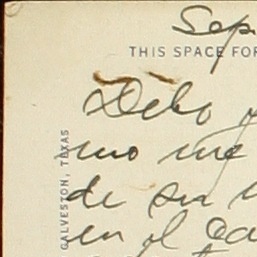 Sep
THIS SPACE FOR
Debo y
uno me
de su
en el Ca
GALVESTON, TEXAS